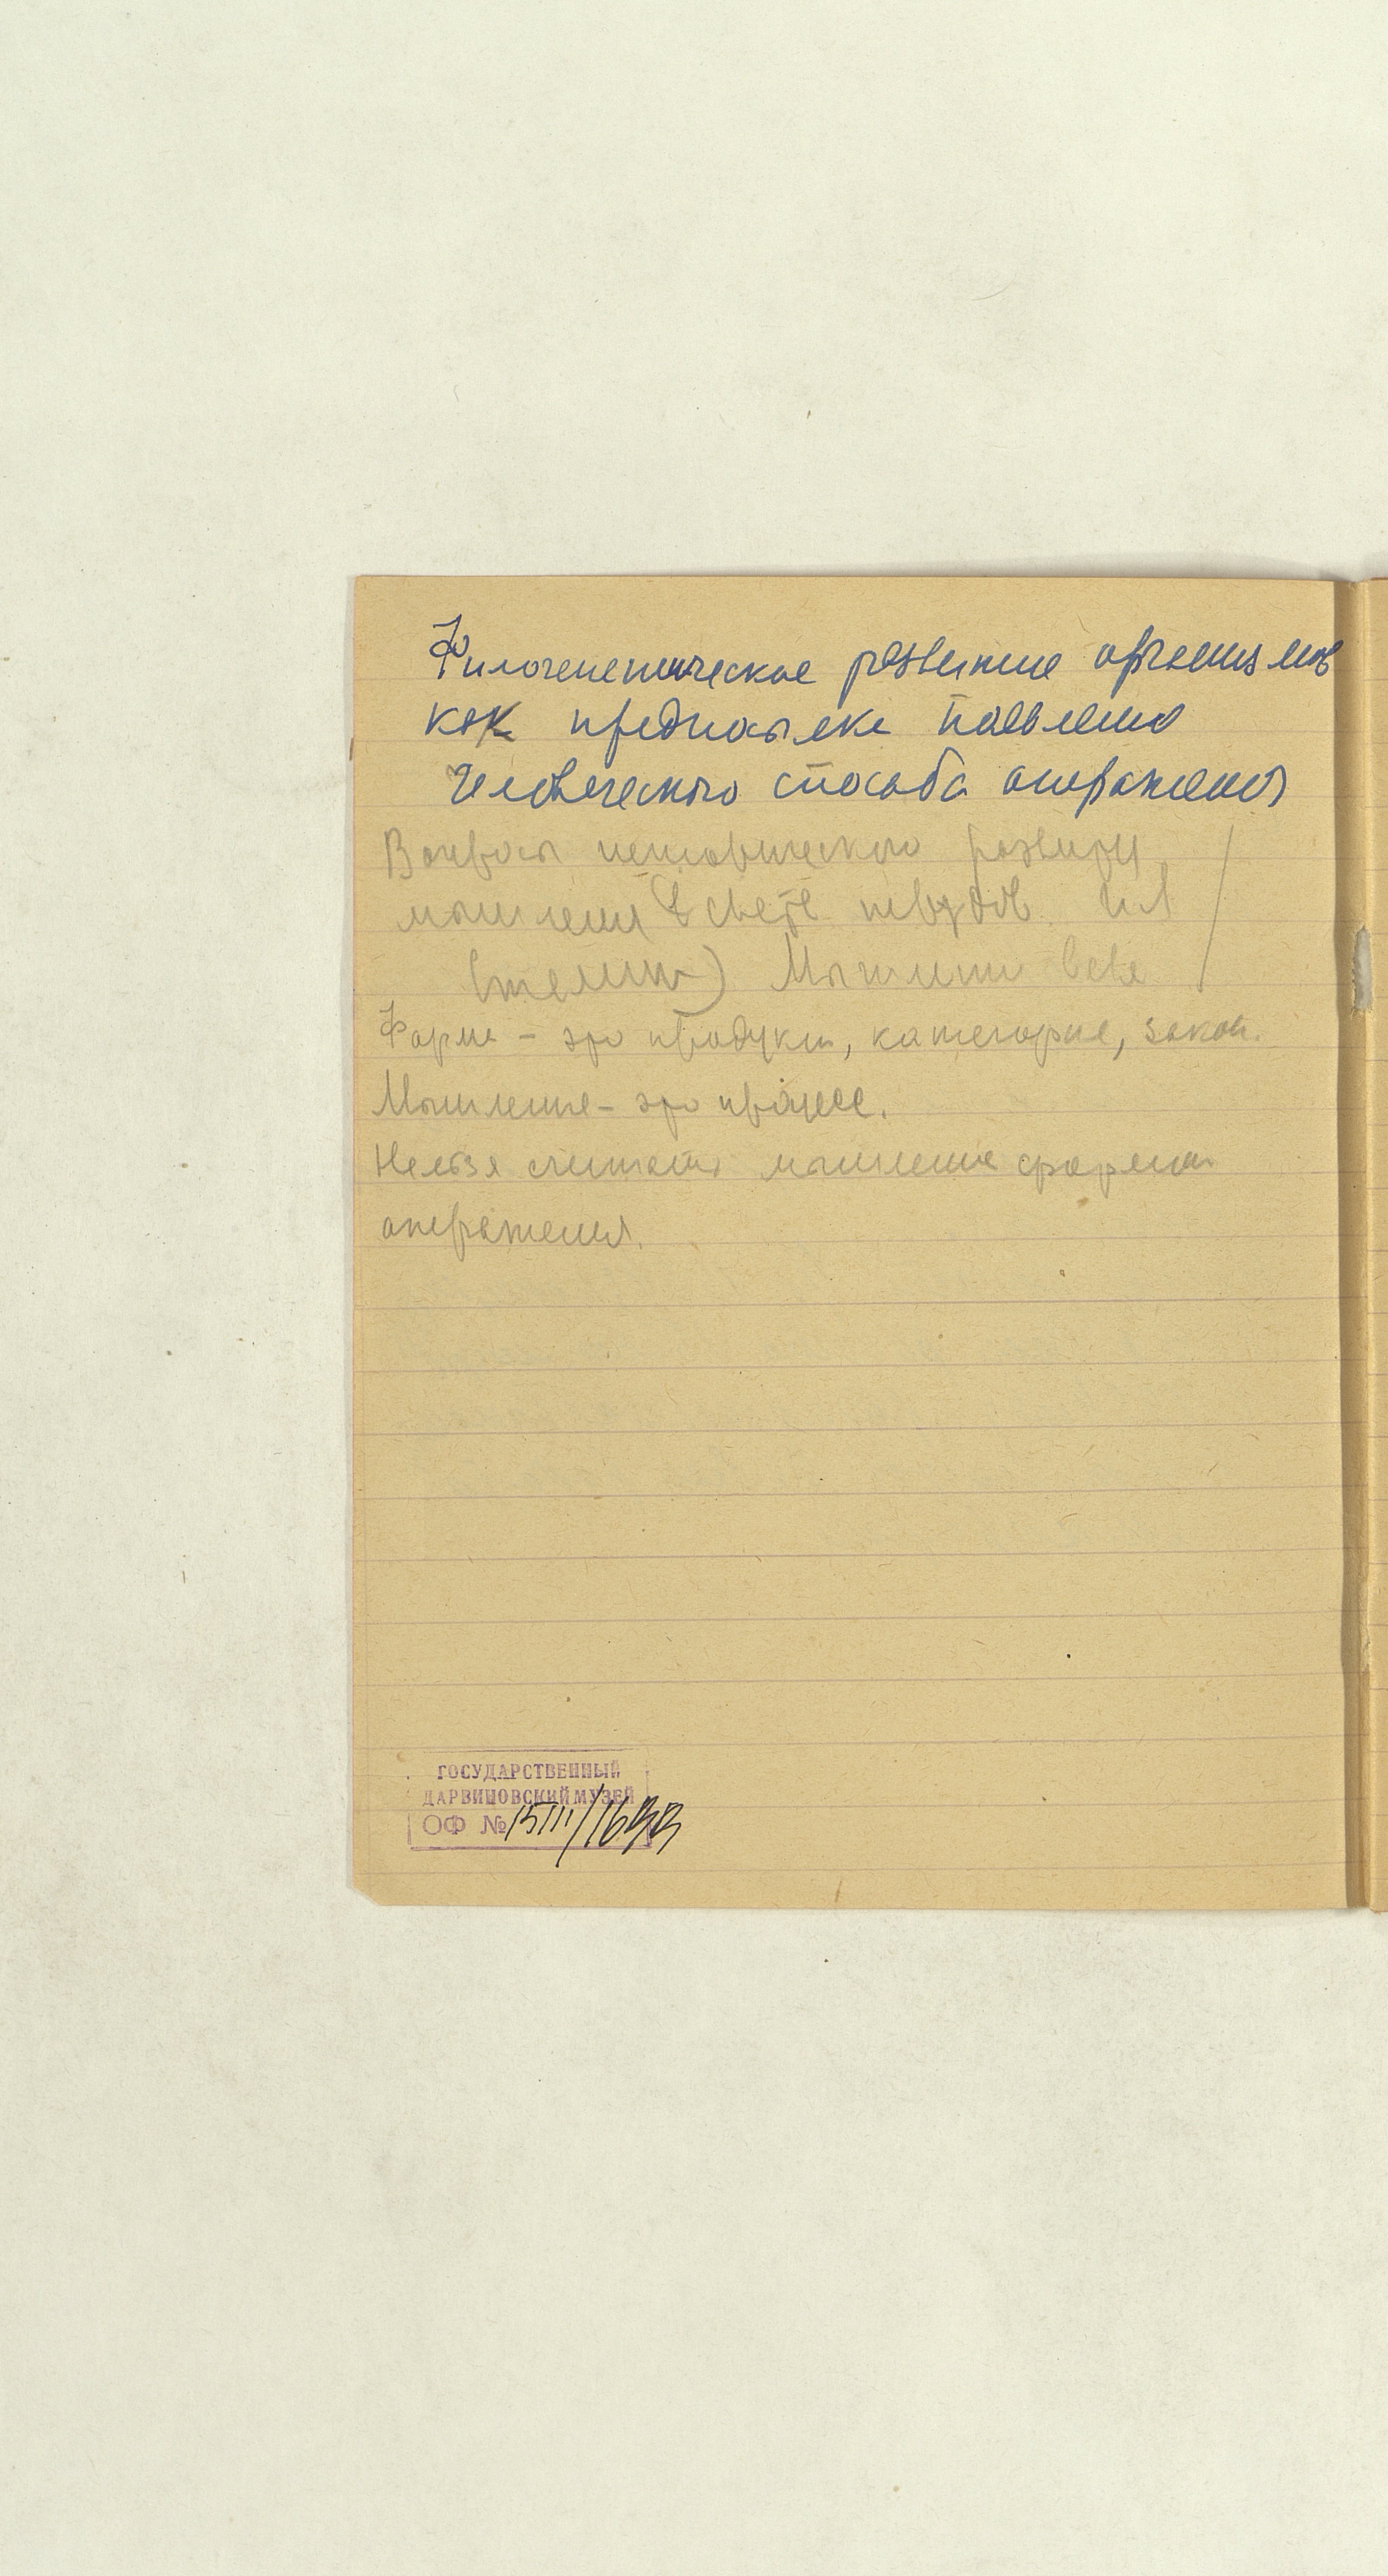 Филогенетическое развитие организмов
как предпосылка появления
человеческого способа отражения
Вопросы исторического развития
мышления в свете трудов
Форма - это продукт, категория, закон.
Мышление - это процесс.
Нельзя считать мышление формой
отражения.
ГОСУДАРСТВЕННЫЙ
ДАРВИНОВСКИЙ МУЗЕЙ
ОФ №